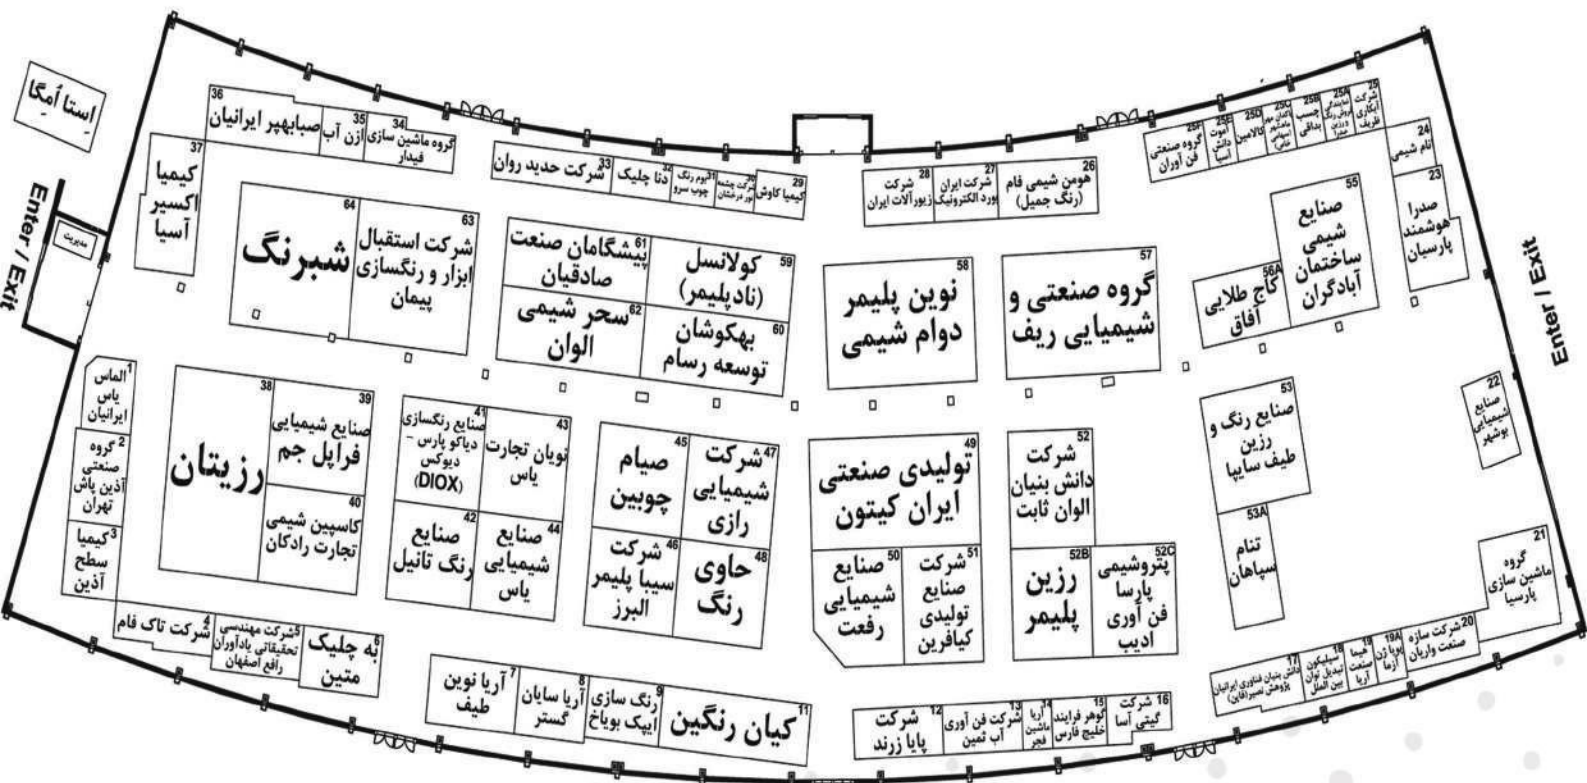 اِستا اُمِگا
Enter / Exit
مدیریت
36
صبابهپر ایرانیان
35
ازن آب
34
گروه ماشین سازی
فیدار
37
کیمیا
اکسیر
آسیا
33
شرکت حدید روان
32
دنا چلیک
31
بوم رنگ
چوب سرو
30
شرکت چشمه
نور درخشان
29
کیمیا کاوش
28
شرکت
زیورآلات ایران
27
شرکت ایران
بورد الکترونیک
26
هومن شیمی فام
(رنگ جمیل)
25F
گروه صنعتی
فن آوران
25E
آموت
دانش
آسیا
25D
کالامین
25C
25B
چسب
بداقی
25A
25
شرکت
آبکاری
ظریف
24
تام شیمی
23
صدرا
هوشمند
پارسیان
64
شبرنگ
63
شرکت استقبال
ابزار و رنگسازی
پیمان
61
پیشگامان صنعت
صادقیان
59
کولانسل
(نادپلیمر)
62
سحر شیمی
الوان
60
بهکوشان
توسعه رسام
58
نوین پلیمر
دوام شیمی
57
گروه صنعتی و
شیمیایی ریف
56A
کاج طلایی
آفاق
55
صنایع
شیمی
ساختمان
آبادگران
Enter / Exit
1
الماس
یاس
ایرانیان
2
گروه
صنعتی
آذین پاش
تهران
3
کیمیا
سطح
آذین
38
رزیتان
39
صنایع شیمیایی
فراپل جم
40
کاسپین شیمی
تجارت رادکان
41
صنایع رنگسازی
دیاکو پارس -
دیوکس
(DIOX)
43
نویان تجارت
یاس
42
صنایع
رنگ تانیل
44
صنایع
شیمیایی
یاس
45
صیام
چوبین
47
شرکت
شیمیایی
رازی
46
شرکت
سیبا پلیمر
البرز
48
حاوی
رنگ
49
تولیدی صنعتی
ایران کیتون
50
صنایع
شیمیایی
رفعت
51
شرکت
صنایع
تولیدی
کیافرین
52
شرکت
دانش بنیان
الوان ثابت
52B
رزین
پلیمر
52C
پتروشیمی
پارسا
فن آوری
ادیب
53
صنایع رنگ و
رزین
طیف سایپا
53A
تنام
سپاهان
22
صنایع
شیمیایی
بوشهر
21
گروه
ماشین سازی
پارسیا
4
شرکت تاک فام
5
شرکت مهندسی
تحقیقاتی یادآوران
رافع اصفهان
6
به چلیک
متین
7
آریا نوین
طیف
8
آریا سایان
گستر
9
رنگ سازی
ایپک بویاخ
11
کیان رنگین
12
شرکت
پایا زرند
13
شرکت فن آوری
آب ثمین
14
آریا
ماشین
فجر
15
گوهر فرایند
خلیج فارس
16
شرکت
گیتی آسا
17
دانش بنیان فناوری ایرانیان
پژوهش نصیر(فاین)
18
سیلیکون
تبدیل توان
بین الملل
19
هیما
صنعت
آریا
19A
پویا زن
آزما
20
شرکت سازه
صنعت واریان